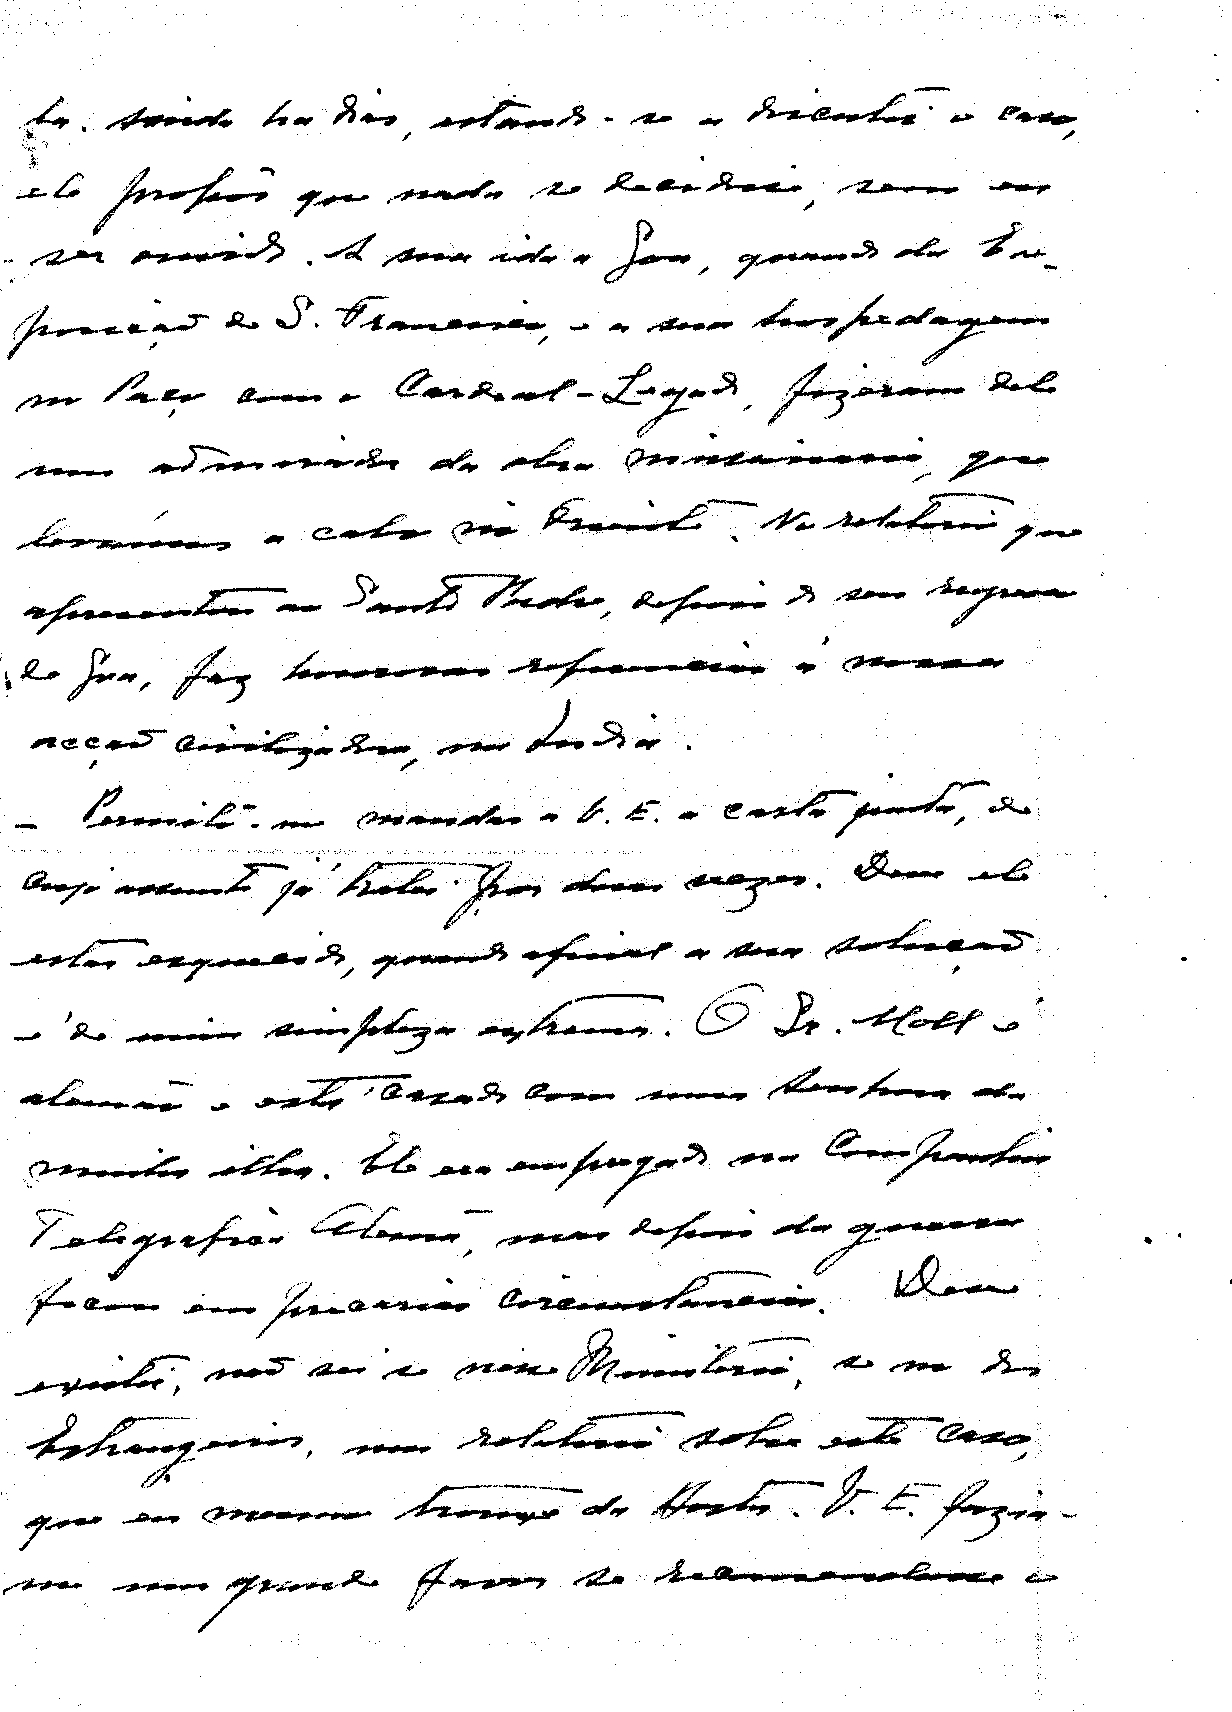 ta. saindo ha dias, estando-se a discutir o caso,
ele propôs que nada se decidisse, sem eu
ser ouvido. A sua ida a Goa, quando da Ex-
posição de S. Francisco, e a sua hospedagem
no Paço com o Cardeal-Legado, fizeram dele
um admirador da obra missionaria, que
levámos a cabo no Oriente. No relatorio que
apresentou ao Santo Padre, depois do seu regresso
de Goa, faz honrosas referencias á nossa
acção civilizadora, na India.
- Permita-me mandar a V. E. a carta junta, de
cujo assunto já tratei por duas vezes. Deve ele
estar esquecido, quando afinal a sua solução
é de uma simpleza extrema. O Sr. Moll é
alemão e está casado com uma senhora da
minha ilha. Ele era empregado na Companhia
Telegrafica Alemã, mas depois da guerra
ficou em precarias circunstancias. Deve
existir, não sei se nesse Ministerio, se no dos
Estrangeiros, um relatorio sobre este caso,
que eu mesmo trouxe da Horta. V. E. fazia-
me um grande favor se recomendasse o